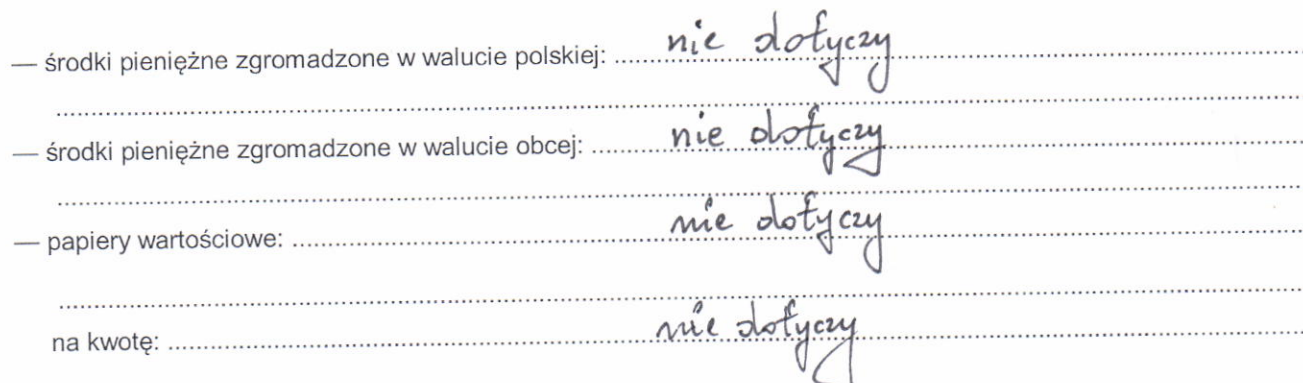 — środki pieniężne zgromadzone w walucie polskiej: nie dotyczy
— środki pieniężne zgromadzone w walucie obcej: nie dotyczy
— papiery wartościowe: nie dotyczy
na kwotę: nie dotyczy